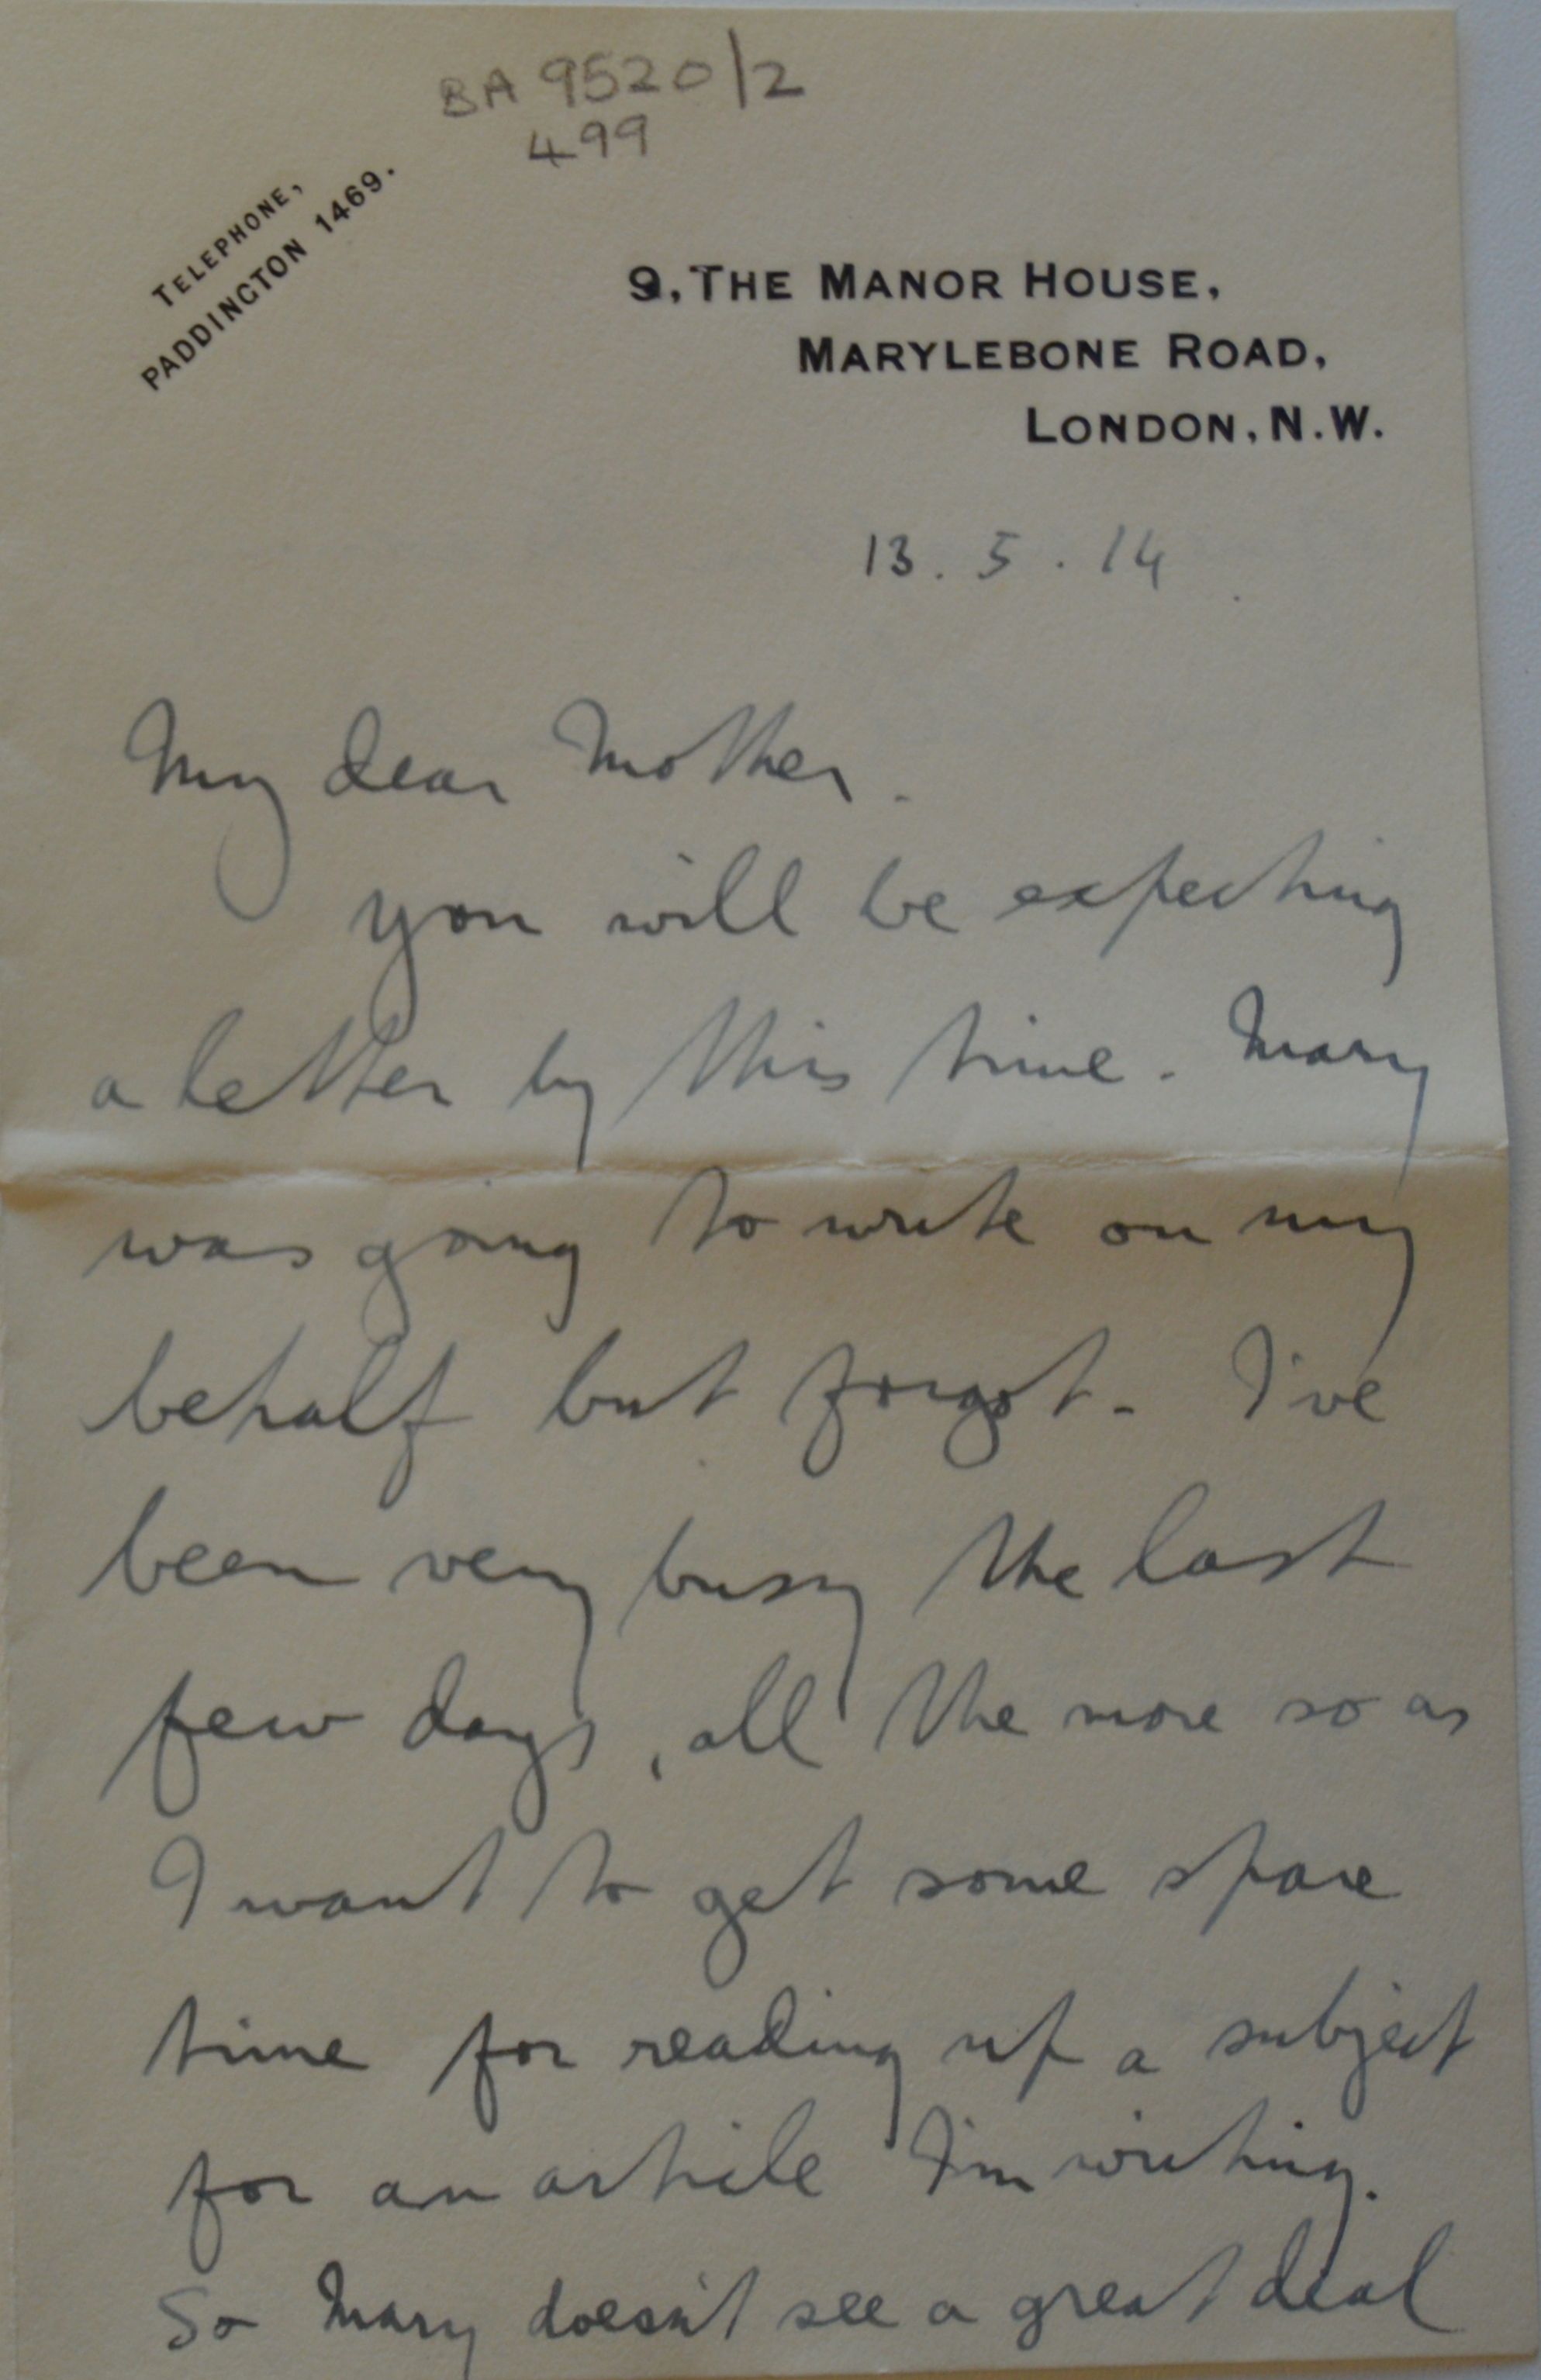 BA 9520/2
499
TELEPHONE,
PADDINGTON 1469.
9, THE MANOR HOUSE,
MARYLEBONE ROAD,
LONDON, N.W.
13.5.14
My dear Mother.
you will be expecting
a letter by this time. Mary
was going to write on my
behalf but forgot. I've
been very busy the last
few days, all the more so as
I want to get some spare
time for reading up a subject
for an article I'm writing.
So Mary doesn't see a great deal